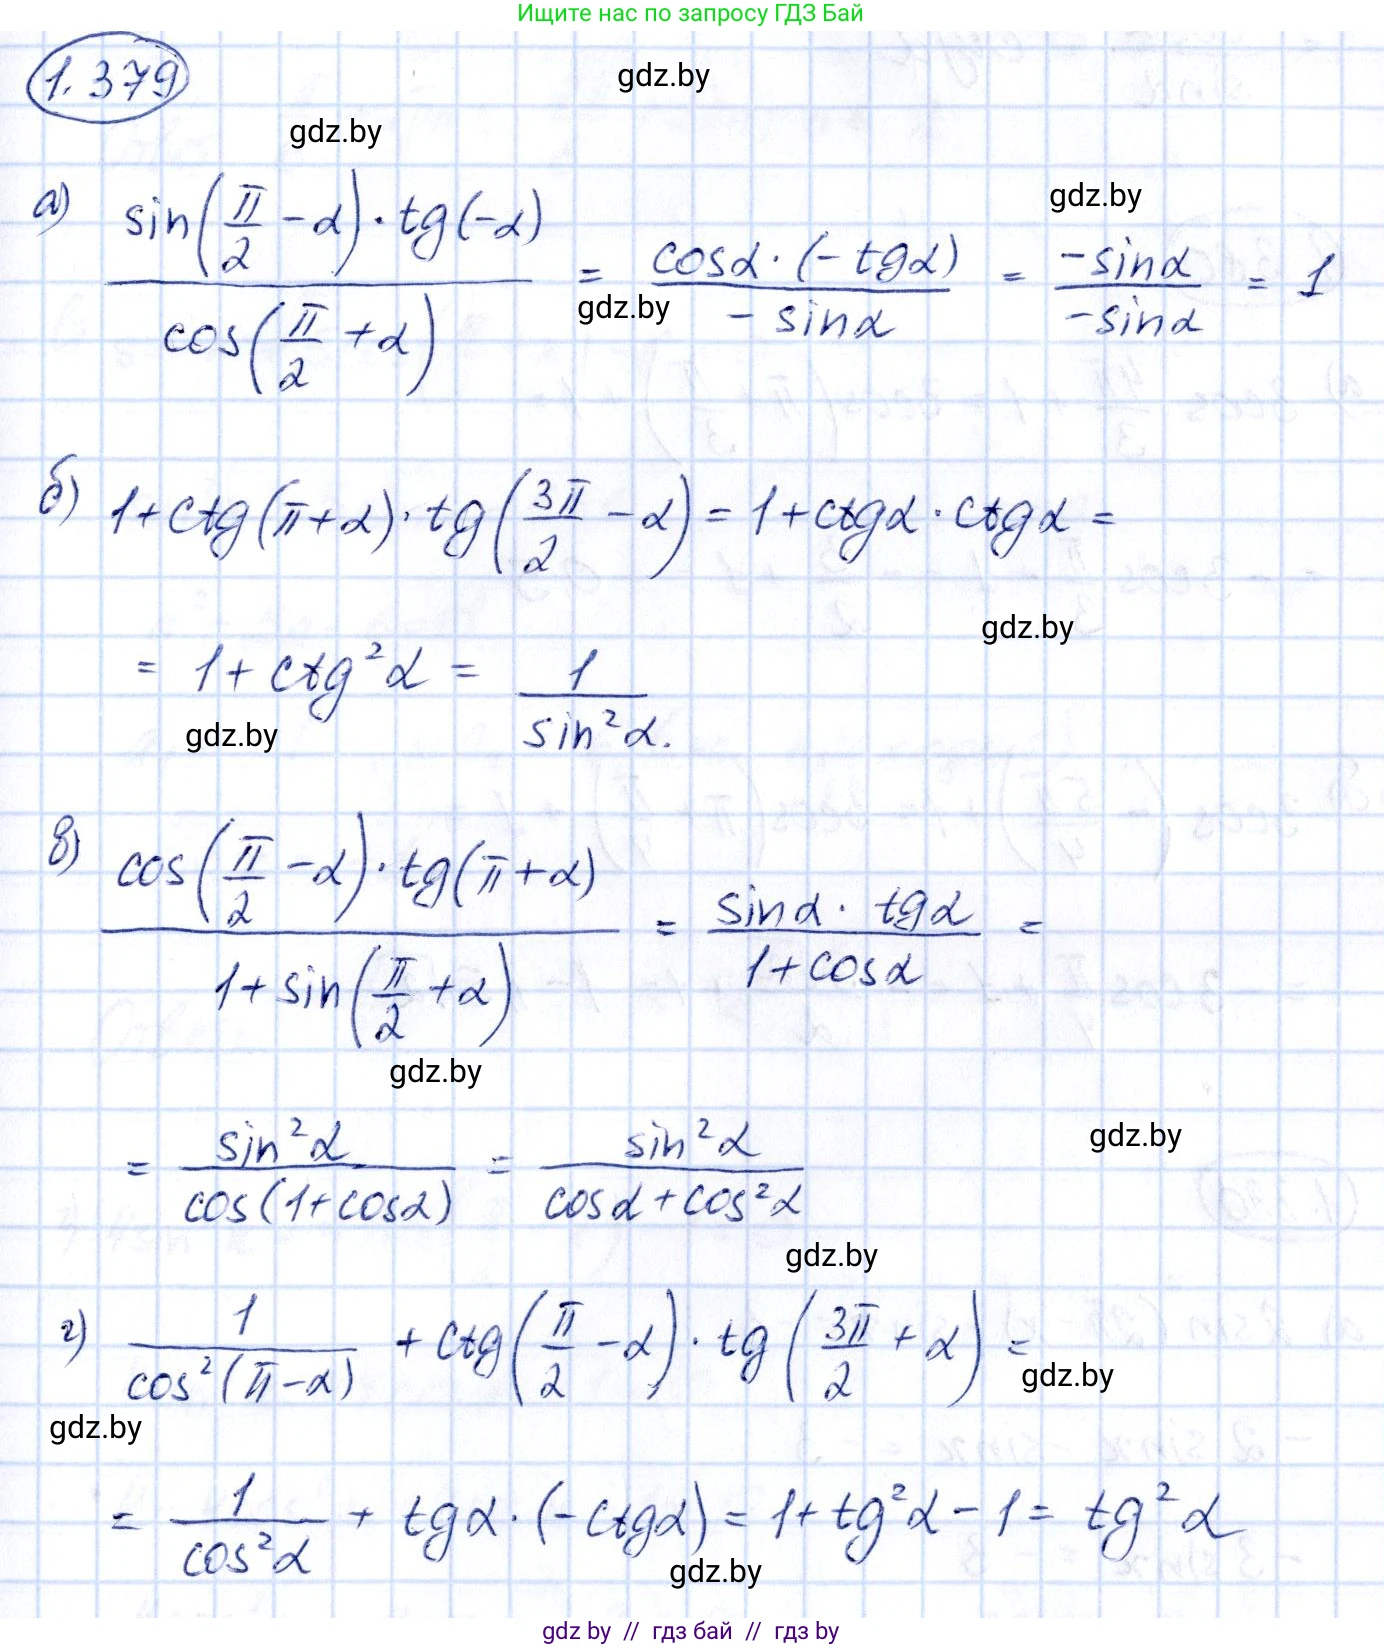 Ищите нас по запросу ГДЗ Бай
1.379
gdz.by
gdz.by
а) sin(π/2 − α) · tg(−α) / cos(π/2 + α) = cosα · (−tgα) / −sinα = −sinα / −sinα = 1
gdz.by
gdz.by
б) 1 + ctg(π + α) · tg(3π/2 − α) = 1 + ctgα · ctgα =
gdz.by
= 1 + ctg²α = 1 / sin²α.
gdz.by
в) cos(π/2 − α) · tg(π + α) / 1 + sin(π/2 + α) = sinα · tgα / 1 + cosα =
gdz.by
gdz.by
= sin²α / cos(1 + cosα) = sin²α / cosα + cos²α
gdz.by
г) 1 / cos²(π − α) + ctg(π/2 − α) · tg(3π/2 + α) =
gdz.by
gdz.by
= 1 / cos²α + tgα · (−ctgα) = 1 + tg²α − 1 = tg²α
gdz.by
gdz by // гдз бай // гдз by